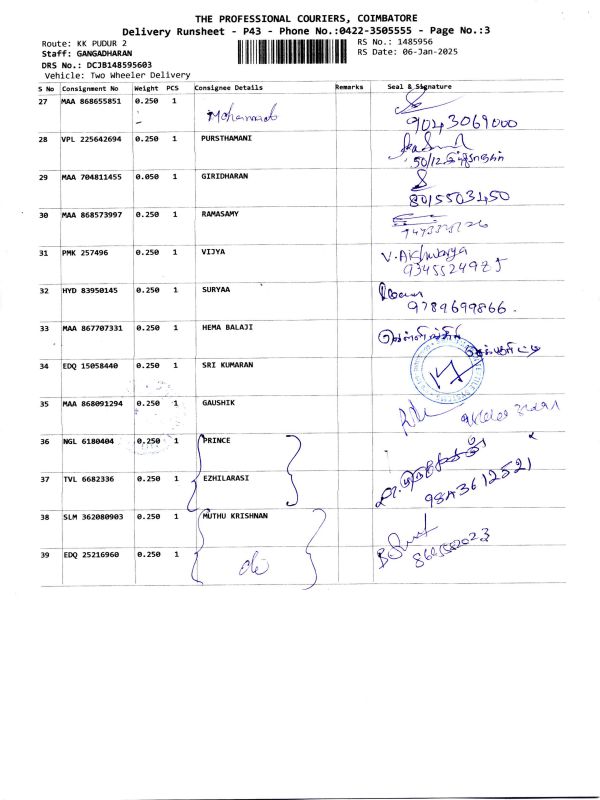 THE PROFESSIONAL COURIERS, COIMBATORE
Delivery Runsheet - P43 - Phone No.:0422-3505555 - Page No.:3
Route: KK PUDUR 2 RS No.: 1485956
Staff: GANGADHARAN RS Date: 06-Jan-2025
DRS No.: DCJB148595603
Vehicle: Two Wheeler Delivery
S No Consignment No Weight PCS Consignee Details Remarks Seal & Signature
27 MAA 868655851 0.250 1
9043069000
28 VPL 225642694 0.250 1 PURSTHAMANI
50/12
29 MAA 704811455 0.050 1 GIRIDHARAN
8015503450
30 MAA 868573997 0.250 1 RAMASAMY
31 PMK 257496 0.250 1 VIJYA V. Aishwarya
9345524925
32 HYD 83950145 0.250 1 SURYAA
9789699866.
33 MAA 867707331 0.250 1 HEMA BALAJI
34 EDQ 15058440 0.250 1 SRI KUMARAN
35 MAA 868091294 0.250 1 GAUSHIK
36 NGL 6180404 0.250 1 PRINCE
37 TVL 6682336 0.250 1 EZHILARASI
9843612521
38 SLM 362080903 0.250 1 MUTHU KRISHNAN
39 EDQ 25216960 0.250 1